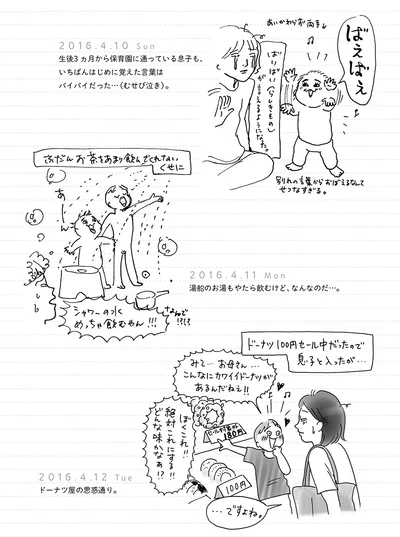 2016.4.10 Sun
生後3ヵ月から保育園に通っている息子も、
いちばんはじめに覚えた言葉は
バイバイだった…(むせび泣く)。
あいかわらずお両手
ばぇばぇ
ばいばい(らしきもの)
が言えるようになった。
別れの言葉からおぼえるなんて
せつなすぎる。
ふだんお茶をあまり飲んでくれない
くせに
あーん
シャワーの水
めっちゃ飲むやん!!!
なんで
!?!?
2016.4.11 Mon
湯船のお湯もやたら飲むけど、なんなのだ…。
ドーナツ100円セール中だったので
息子と入ったが…
みて…お母さん…
こんなにカワイイドーナツが
あるんだねぇ!!
ぼくこれ!!
絶対これにする!!
どんな味かなぁ!?
180円
100円
…ですよね。
2016.4.12 Tue
ドーナツ屋の思惑通り。